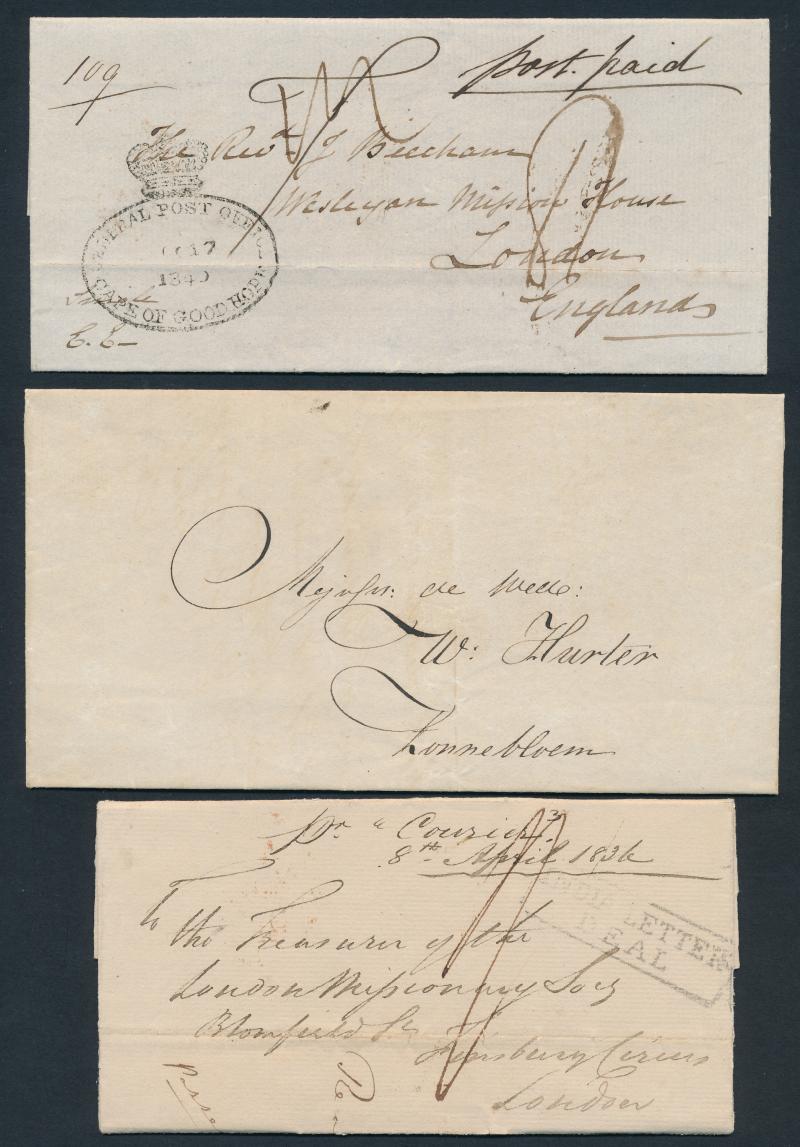 109
Post paid
The Revd. J Beecham
Wesleyan Mission House
London
England
GENERAL POST OFFICE
OC 17
1840
CAPE OF GOOD HOPE
Mejufvr: de Wede:
W: Hurter
Zonnebloem
Pr "Courier"
8th April 1836
To
The Treasurer of the
London Missionary Socy
Blomfield St
Finsbury Circus
London
INDIA LETTER
DEAL